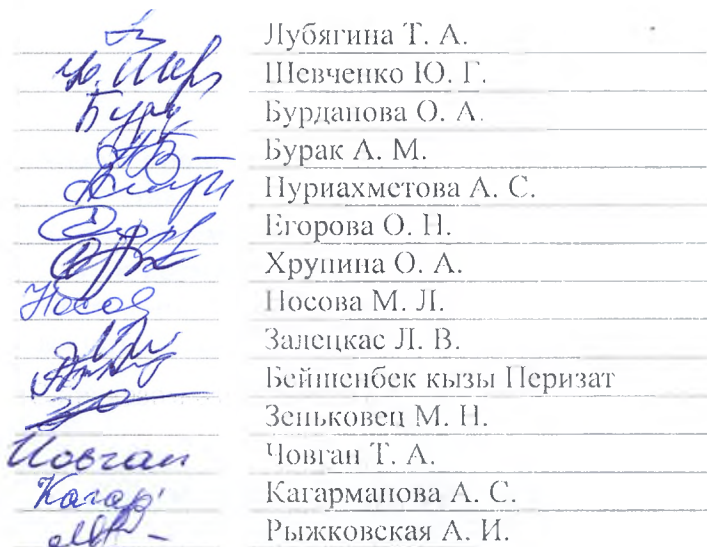 Лубягина Т. А.
Шевченко Ю. Г.
Бурданова О. А.
Бурак А. М.
Нуриахметова А. С.
Егорова О. Н.
Хрупина О. А.
Носова М. Л.
Залецкас Л. В.
Бейшенбек кызы Перизат
Зеньковец М. Н.
Човган Човган Т. А.
Кагарманова А. С.
Рыжковская А. И.